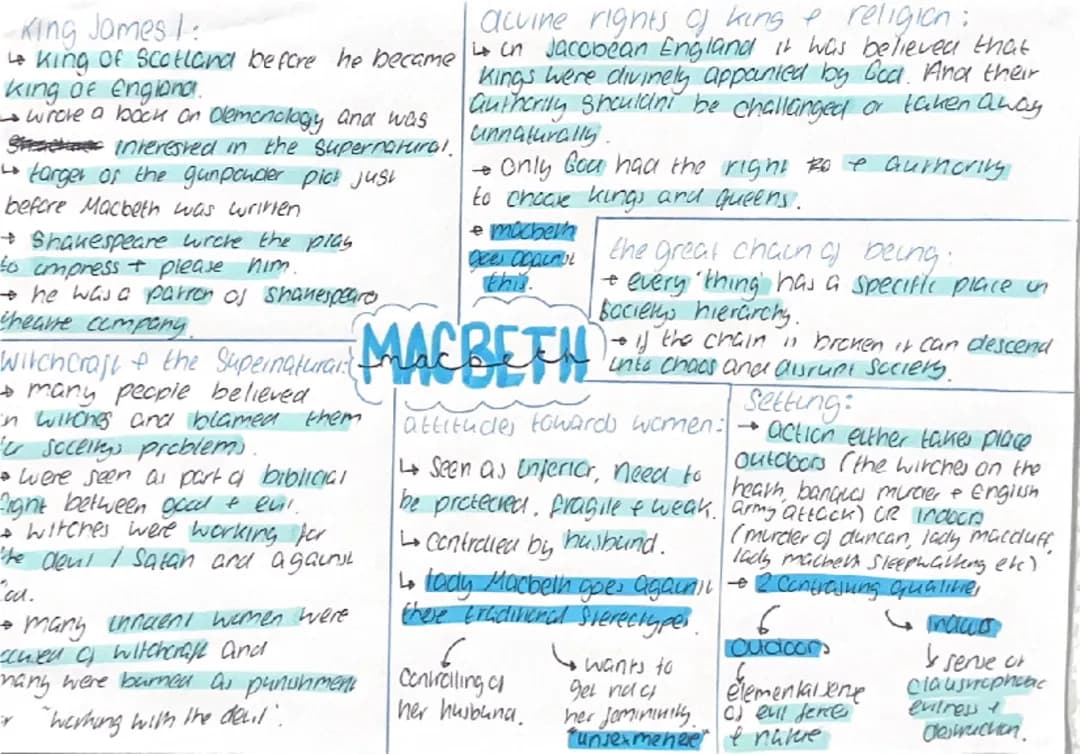 King James I:
↳ King of Scotland before he became
King of England.
→ wrote a book on Demonology and was
interested in the supernatural.
↳ target of the gunpowder plot just
before Macbeth was written
→ Shakespeare wrote the play
to impress + please him.
→ he was a patron of Shakespeare
theatre company.
divine rights of king & religion:
↳ in Jacobean England it was believed that
kings were divinely appointed by God. And their
authority shouldn't be challanged or taken away
unnaturally.
→ Only God had the right & authority
to choose kings and queens.
macbeth
goes against
this.
the great chain of being:
→ every 'thing' has a specific place in
societys hierarchy.
→ if the chain is broken it can descend
into chaos and disrupt society.
MACBETH
macbeth
Witchcraft & the Supernatural:
→ many people believed
in witches and blamed them
for societys problems.
→ were seen as part of biblicial
fight between good & evil.
→ witches were working for
the devil / Satan and against
God.
→ many innocent women were
accused of witchcraft and
many were burned as punishment
for "working with the devil".
attitudes towards women:
↳ Seen as inferior, need to
be protected, fragile & weak.
↳ controlled by husband.
↳ lady Macbeth goes against
these traditional stereotypes.
controlling of
her husband.
wants to
get rid of
her femininity.
"unsex me here"
Setting:
→ action either takes place
outdoors (the witches on the
heath, banquos murder & English
army attack) OR indoors
(murder of duncan, lady macduff,
lady macbeth sleepwalking etc)
→ 2 contrasting qualities
outdoors
elemental sense
of evil forces
& nature
indoors
sense of
claustrophobic
evilness &
destruction.